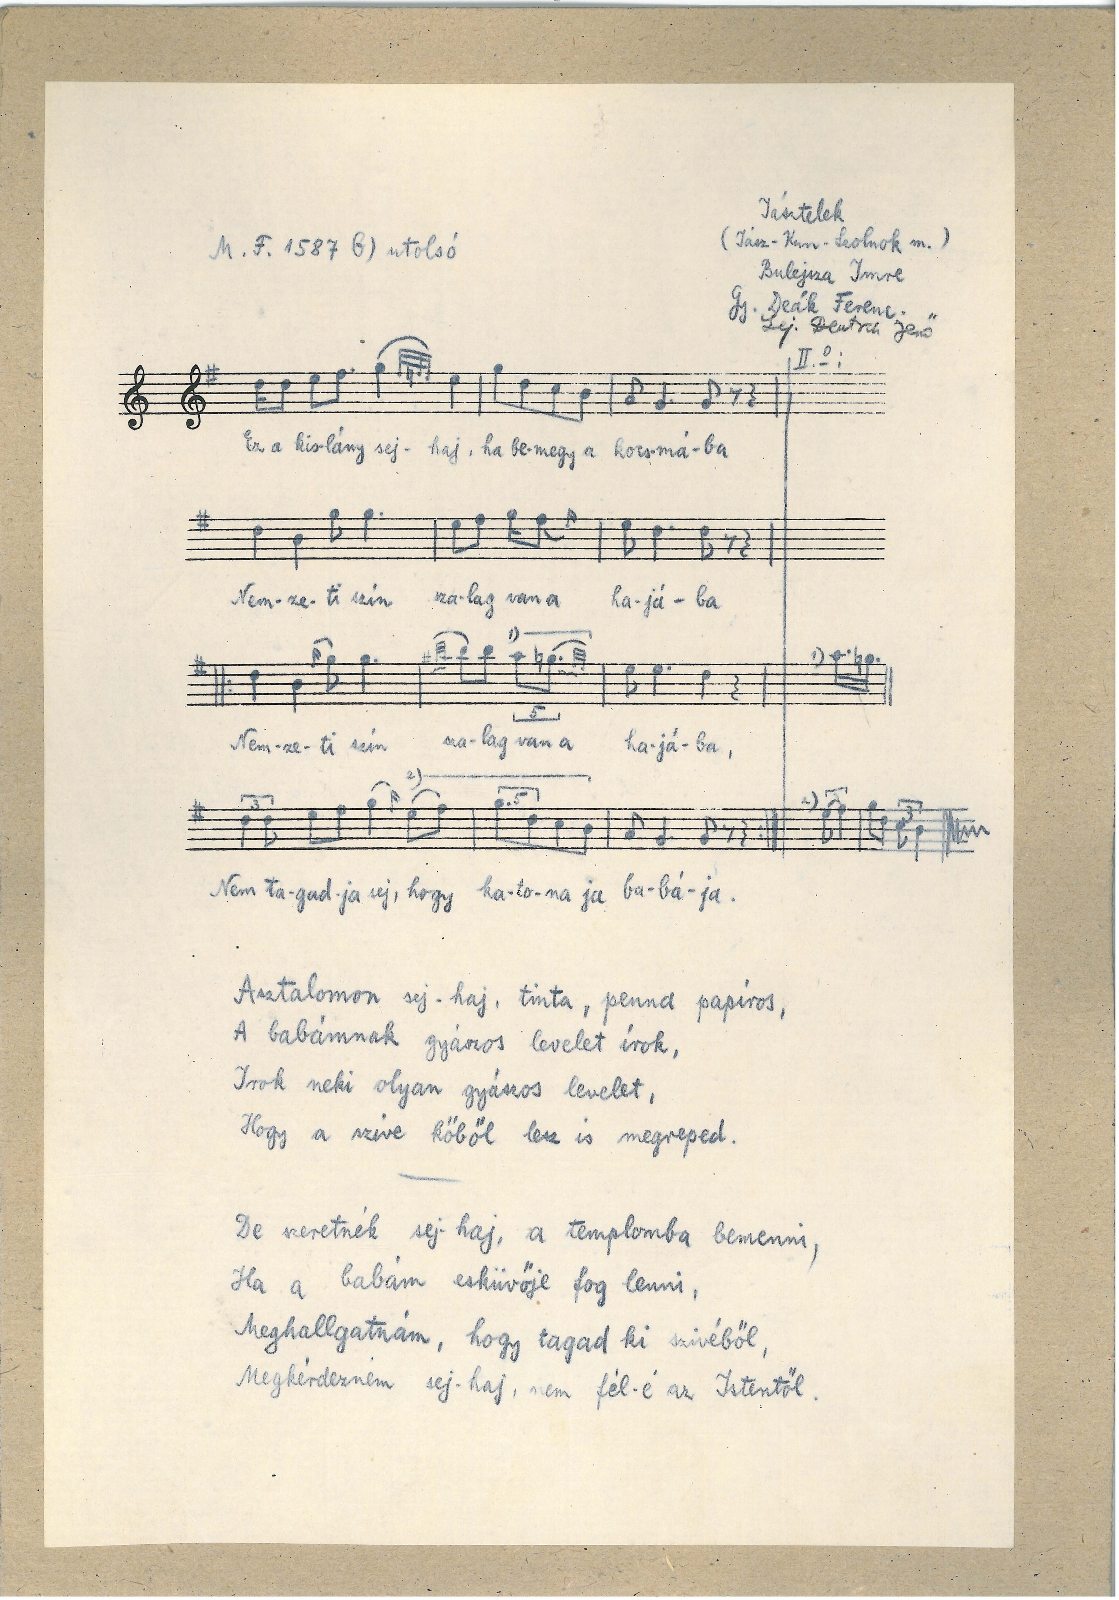 M. F. 1587 b) utolsó
Jásztelek
(Jász-Kun-Szolnok m.)
Bulejsza Imre
Gy. Deák Ferenc.
Lej. Deutsch Jenő
II.º:
Ez a kis-lány sej- haj, ha be-megy a kocs-má-ba
Nem-ze-ti szín sza-lag van a ha-já-ba
1)
1)
5
Nem-ze-ti szín sza-lag van a ha-já-ba,
3
2)
5
2)
3
3
Nem ta-gad-ja sej, hogy ka-to-na ja ba-bá-ja.
Asztalomon sej-haj, tinta, penna papíros,
A babámnak gyászos levelet írok,
Irok neki olyan gyászos levelet,
Hogy a szíve kőből lesz is megreped.
De szeretnék sej-haj, a templomba bemenni,
Ha a babám esküvője fog lenni,
Meghallgatnám, hogy tagad ki szivéből,
Megkérdezném sej-haj, nem fél-é az Istentől.